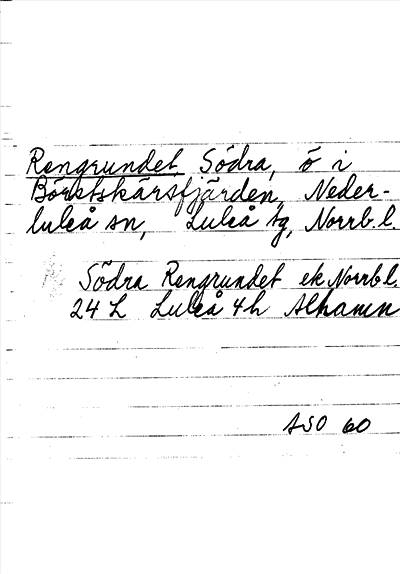 Rengrundet, Södra, ö i
Börstskärsfjärden, Neder-
luleå sn, Luleå tg, Norrb.l.
Södra Rengrundet ek Norrb.l.
24 L Luleå 4h Alhamn
ASO 60